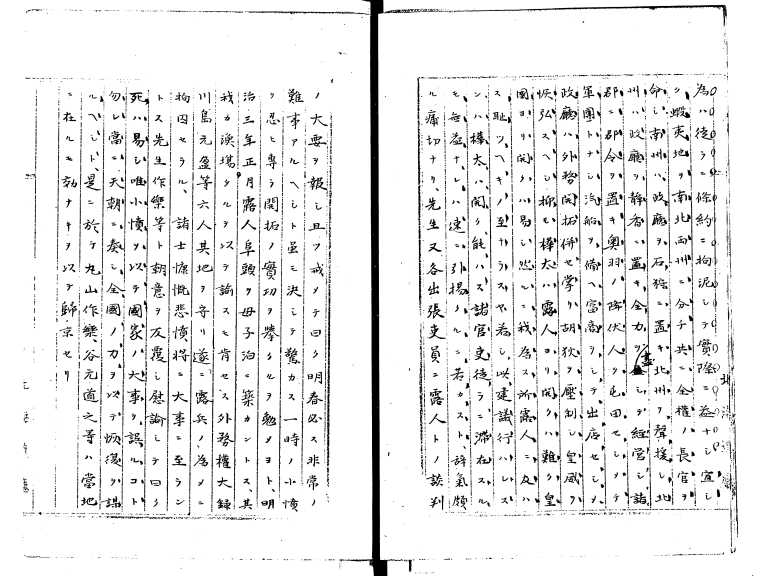 為ハ徒ラニ條約ニ拘泥シテ實際ニ益ナシ宜シ
ク蝦夷地ヲ南北両州ニ分チ共ニ全權ノ長官ヲ
命シ南州ハ政廳ヲ石狩ニ置キ北州ノ聲援シ北
州ハ政廳ヲ静香ニ置キ全力ヲ盡シテ經營シ諸
郡ニ郡令ヲ置キ奥羽ノ降伏人ヲ屯田セシメテ
軍團トナシ汽船ヲ備ヘ富商ヲシテ出店セシメ
政廳ハ外務開拓併セ掌リ胡狄ヲ壓制シ皇威ヲ
恢弘スヘシ抑モ樺太ハ露人ヨリ開クハ難ク皇
國ヨリ開クハ易シ然ルニ我為ス所露人ニ及ハ
ス耻ツヘキノ至ナラスヤ若シ以建議行ハレス
ンハ樺太ハ開ク能ハス諸官吏徒ラニ滞在スル
モ無益ナレハ速ニ引揚クルニ若カスト辞氣頗
ル痛切ナリ先生又各出張吏員ニ露人トノ談判
ノ大要ヲ報シ且ツ戒メテ曰ク明春必ス非常ノ
難事アルヘシト虽モ決シテ驚カス一時ノ小憤
ヲ忍ヒ專ラ開拓ノ實功ヲ擧クルヲ勉メヨト明
治三年正月露人阜頭ヲ母子泊ニ築カントス其
我カ漁場タルヲ以テ諭スモ肯セス外務權大録
川島元盈等六人其地ヲ守リ遂ニ露兵ノ為メニ
拘囚セラル諸士慷慨悲憤将ニ大事ニ至ラン
トス先生作樂等ト朝意ヲ反覆シ慰諭シテ曰ク
死ハ易シ唯小憤ヲ以テ國家ノ大事ヲ誤ルコト
勿レ當ニ天朝ニ奏シ全國ノ力ヲ以テ恢復ヲ謀
ルヘシト是ニ於テ丸山作樂谷元道之等ハ當地
ニ在ルモ効ナキヲ以テ歸京セリ